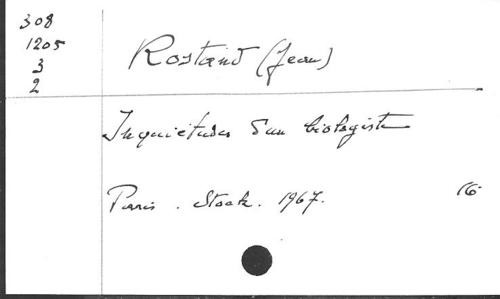 308
1205
3
2
Rostand (Jean)
Inquiétudes d'un biologiste
Paris. Stock. 1967.
16°